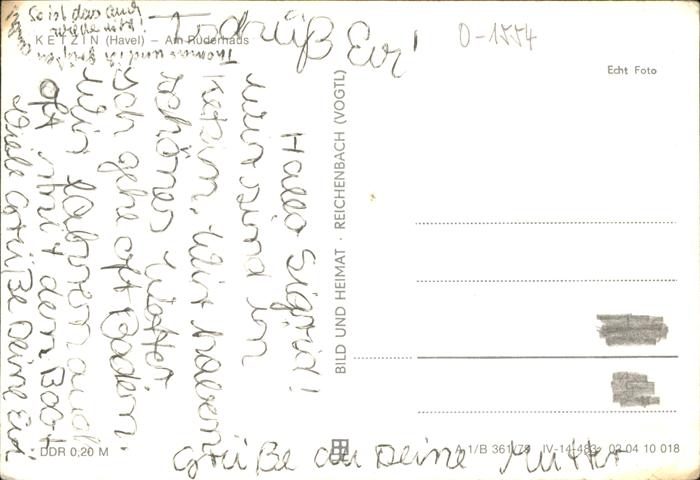 So ist das auch
Tschüß Evi!
KETZIN (Havel) – Am Ruderhaus
Thomas und ich grüßen
0-1554
Echt Foto
Hallo Sigrid!
Wir sind in
Ketzin. Wir haben
schönes Wetter
Ich gehe oft Baden.
Wir fahren auch
oft mit dem Boot
Viele Grüße Deine Evi
BILD UND HEIMAT · REICHENBACH (VOGTL)
DDR 0,20 M
A 1/B 361/79 IV-14-483 03 04 10 018
Grüße an Deine Mutter